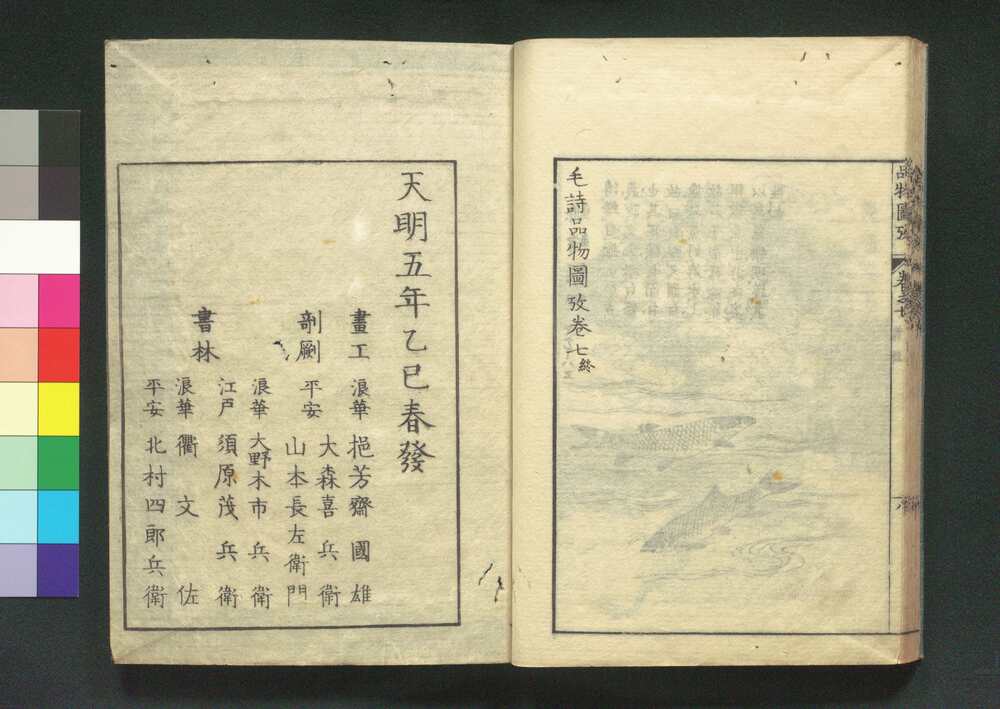 毛詩品物圖攷卷七終
品物圖攷
卷之七
天明五年乙巳春發
畫工 浪華 挹芳齋國雄
剞劂 平安 大森喜兵衛
山本長左衛門
書林
浪華 大野木市兵衛
江戸 須原茂兵衛
浪華 衢文佐
平安 北村四郎兵衛